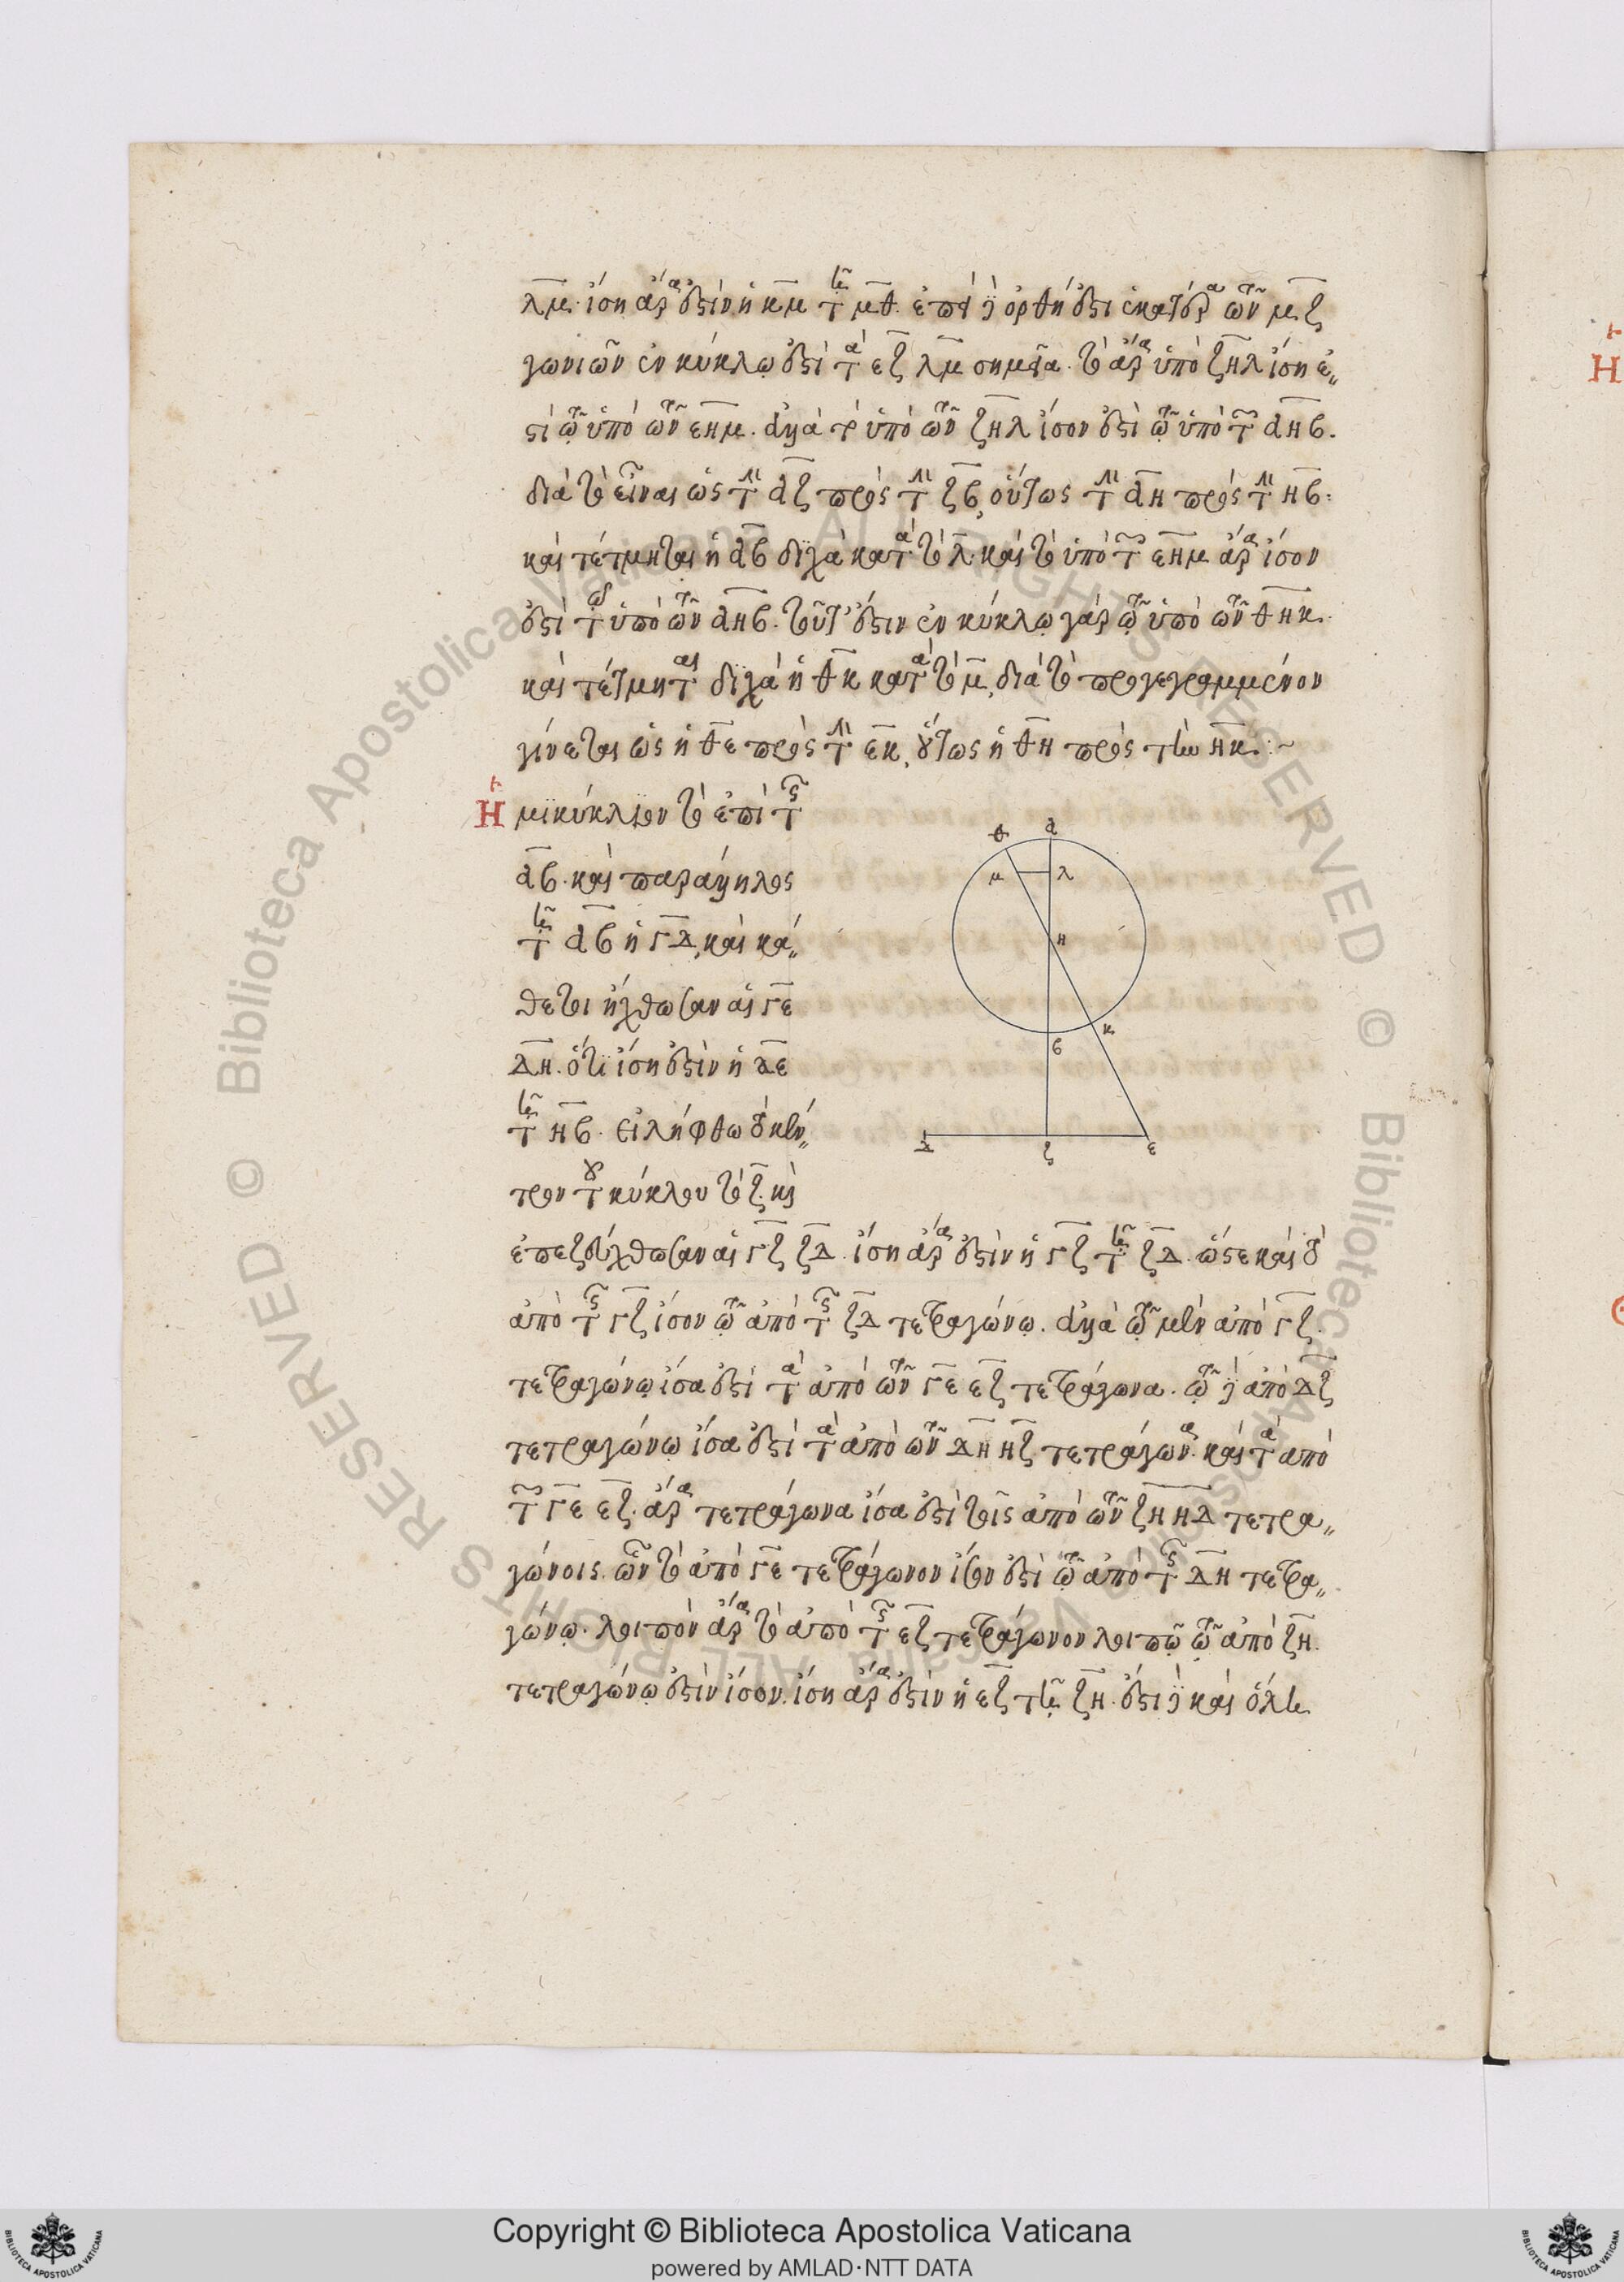 λμ. ἴση ἄρα ἐστὶν ἡ κμ τῇ μθ. ἐπεὶ δὲ ὀρθή ἐστι ἑκατέρα τῶν μ ζ
γωνιῶν ἐν κύκλῳ ἐστὶ τὰ εζ λμ σημεῖα. τὸ ἄρα ὑπὸ ζηλ ἴση ἐ〃
στὶ τῷ ὑπὸ τῶν εημ. ἀλλὰ τὸ ὑπὸ τῶν ζηλ ἴσον ἐστὶ τῷ ὑπὸ τῶν αηβ.
διὰ τὸ εἶναι ὡς τὴν αζ πρὸς τὴν ζβ, οὕτως τὴν αη πρὸς τὴν ηβ:
καὶ τέτμηται ἡ αβ δίχα κατὰ τὸ λ. καὶ τὸ ὑπὸ τῶν εημ ἄρα ἴσον
ἐστὶ τῷ ὑπὸ τῶν αηβ. τοῦτ' ἔστιν ἐν κύκλῳ γὰρ τῷ ὑπὸ τῶν θηκ.
καὶ τέτμηται δίχα ἡ θκ κατὰ τὸ μ, διὰ τὸ προγεγραμμένον
γίνεται ὡς ἡ θε πρὸς τὴν εκ, οὕτως ἡ θη πρὸς τὴν ηκ :~
Ἡμικύκλιον τὸ ἐπὶ τῆς
αβ. καὶ παράλληλος
τῇ αβ ἡ γδ, καὶ κά〃
θετοι ἤχθωσαν αἱ γε
δη. ὅτι ἴση ἐστὶν ἡ αε
τῇ ηβ. εἰλήφθω τὸ κέν〃
τρον τοῦ κύκλου τὸ ζ. καὶ
ἐπεζεύχθωσαν αἱ γζ ζδ. ἴση ἄρα ἐστὶν ἡ γζ τῇ ζδ. ὥστε καὶ τὸ
ἀπὸ τῆς γζ ἴσον τῷ ἀπὸ τῆς ζδ τετραγώνῳ. ἀλλὰ τῷ μὲν ἀπὸ γζ.
τετραγώνῳ ἴσα ἐστὶ τὰ ἀπὸ τῶν γε εζ τετράγωνα. τῷ δὲ ἀπὸ δζ
τετραγώνῳ ἴσα ἐστὶ τὰ ἀπὸ τῶν δη ηζ τετράγωνα. καὶ τὰ ἀπὸ
τῶν γε εζ. ἄρα τετράγωνα ἴσα ἐστὶ τοῖς ἀπὸ τῶν ζη ηδ τετρα〃
γώνοις. ὧν τὸ ἀπὸ γε τετράγωνον ἴσον ἐστὶ τῷ ἀπὸ τῆς δη τετρα〃
γώνῳ. λοιπὸν ἄρα τὸ ἀπὸ τῆς εζ τετράγωνον λοιπῷ τῷ ἀπὸ ζη.
τετραγώνῳ ἐστὶν ἴσον. ἴση ἄρα ἐστὶν ἡ εζ τῇ ζη. ἔστι δὲ καὶ ὅλη
θ α
μ λ
η
κ
β
δ ζ ε
Η
Copyright © Biblioteca Apostolica Vaticana
powered by AMLAD·NTT DATA